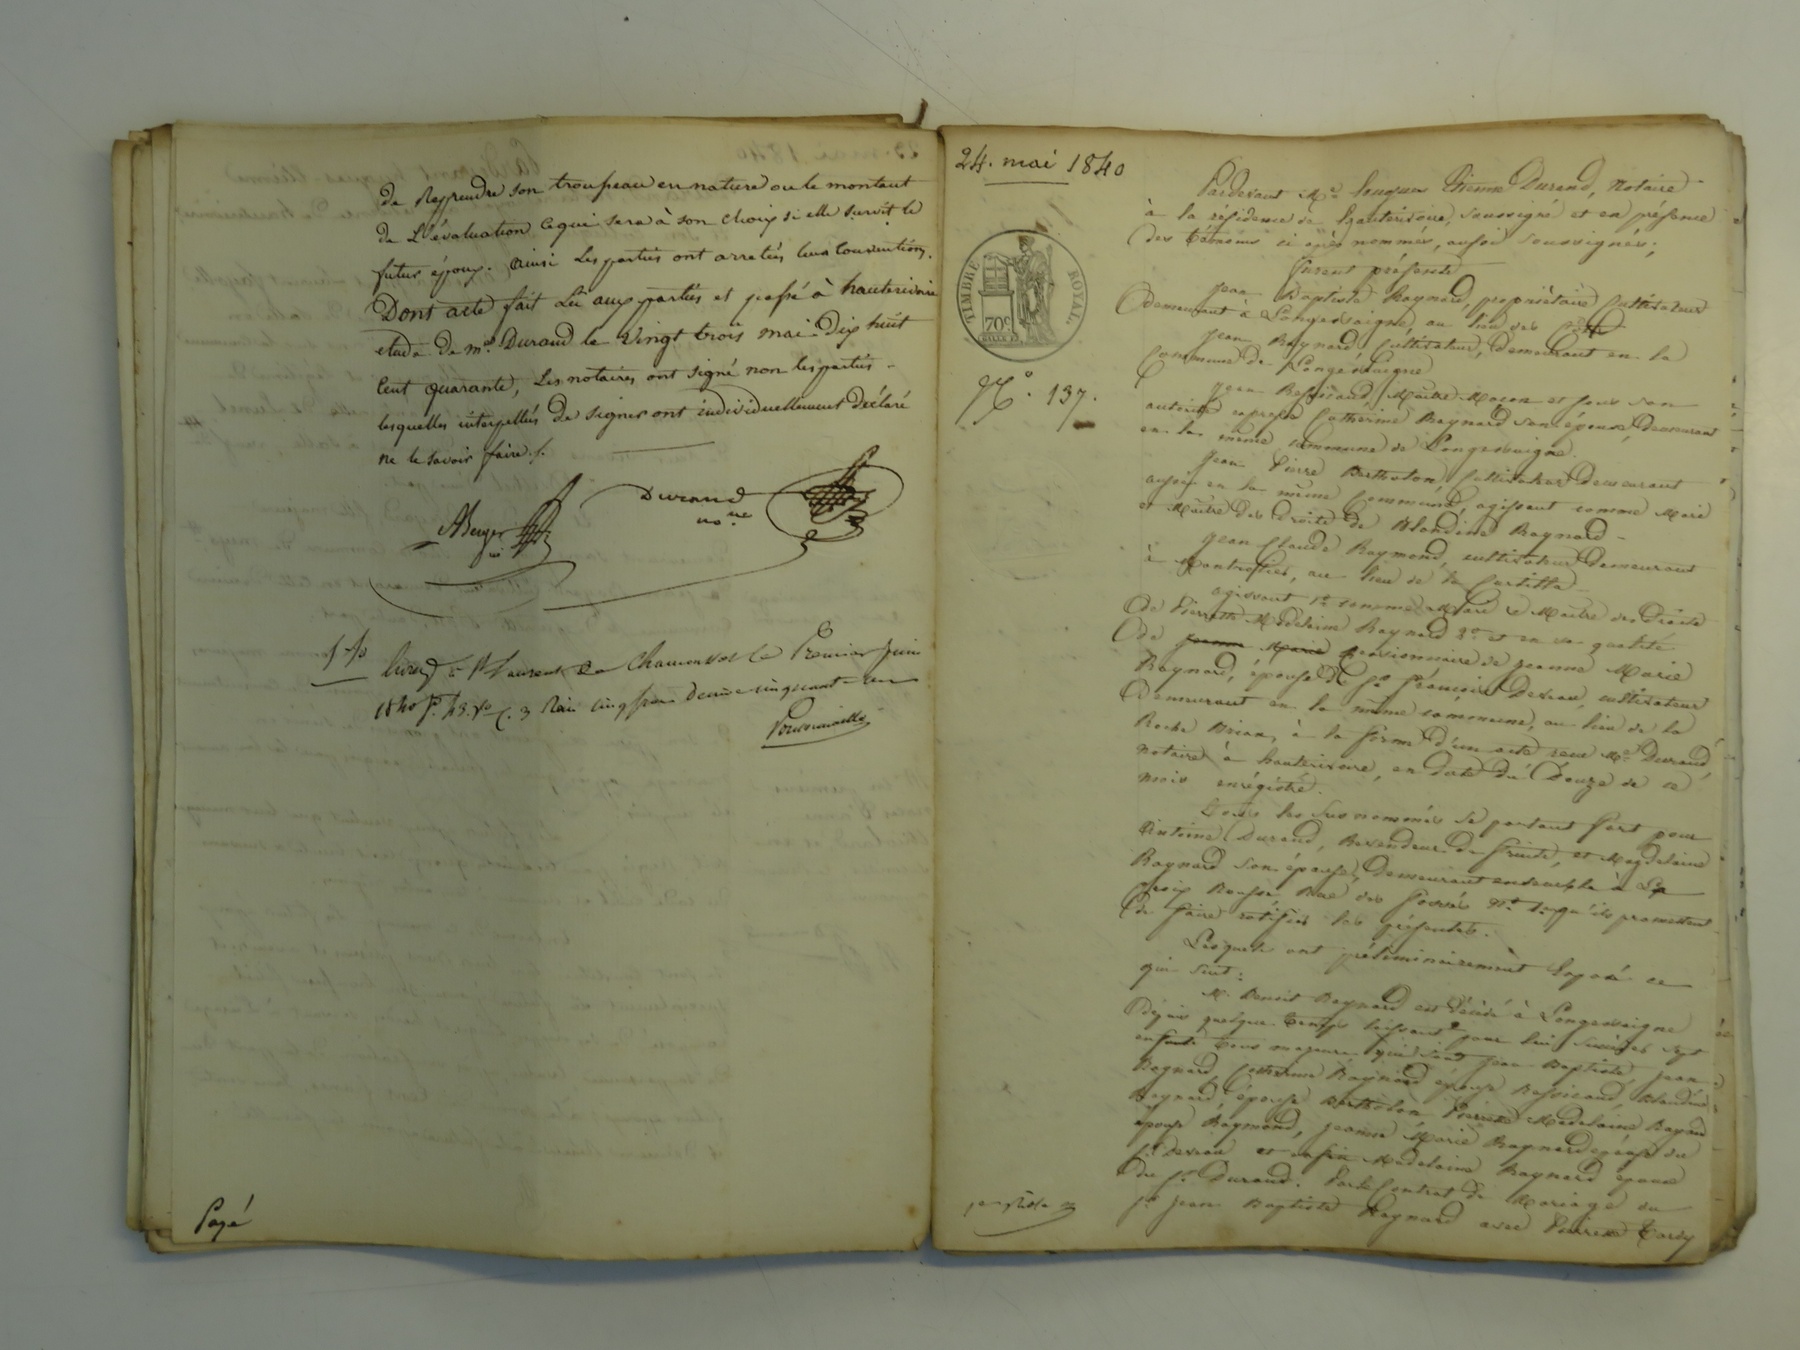 de Reprendre son trousseau en nature ou le montant
de L'évaluation ce qui sera à son choix si elle survit le
futur époux. ainsi Les parties ont arretées leurs Conventions.
Dont acte fait Lu aux parties et passé à hauterivoire
etude de me Durand le Vingt trois mai Dix huit
Cent quarante, Les notaires ont signé non les parties
lesquelles interpellés de signer ont individuellement déclaré
ne le savoir faire ./.
Durand
nore
ABerger
St Laurent de Chamousset le Premier juin
1840 cinq francs cinquante
Payé
24. mai 1840
TIMBRE ROYAL
70c
No. 137.
Pardevant Me Jacques Etienne Durand, notaire
à la résidence de hauterivoire, soussigné et en présence
des témoins ci après nommés, aussi soussignés;
furent présents
Jean Baptiste Raynard, propriétaire Cultivateur
demeurant à Longessaigne, au lieu des
Jean Raynard Cultivateur, demeurant en la
Commune de Longessaigne
Jean Maitre Maçon et sous son
autorité expresse Catherine Raynard son épouse, demeurant
en la même commune de Longessaigne.
Jean Pierre Bertholon, Cultivateur demeurant
aussi en la même Commune, agissant comme Mari
et Maitre des Droits de Blandine Raynard
Jean Claude Raymond, cultivateur demeurant
à Montrottier, au lieu de la
agissant 1o comme Mari & Maitre des Droits
de Pierrette Madelaine Raynard 2o et en sa qualité
de Jeanne Marie Cessionnaire de Jeanne Marie
Raynard, épouse de Sr françois cultivateur
demeurant en la même commune, au lieu de la
Roche à la forme d'un acte reçu Me Durand,
notaire à hauterivoire, en date du Douze de ce
mois enrégistré.
Tous les susnommés se portant fort pour
Antoine Durand, Revendeur de fruits, et Magdelaine
Raynard son épouse, demeurant ensemble à La
croix Rousse Rue des fossés No qu'ils promettent
de faire ratifier les présentes.
Lesquels ont préliminairement Exposé ce
qui suit:
M. Benoit Raynard est décédé à Longessaigne
Depuis quelque temps laissant pour lui succéder sept
enfants tous majeurs qui sont Jean Baptiste, Jean
Raynard, Catherine Raynard épouse Blandine
Raynard, épouse Bertholon Pierrette Madelaine Raynard
épouse Raymond, Jeanne Marie Raynard épouse du
Sr et enfin Madelaine Raynard épouse
du Sr Durand. Par le Contrat de Mariage du
Sr Jean Baptiste Raynard avec Pierrette